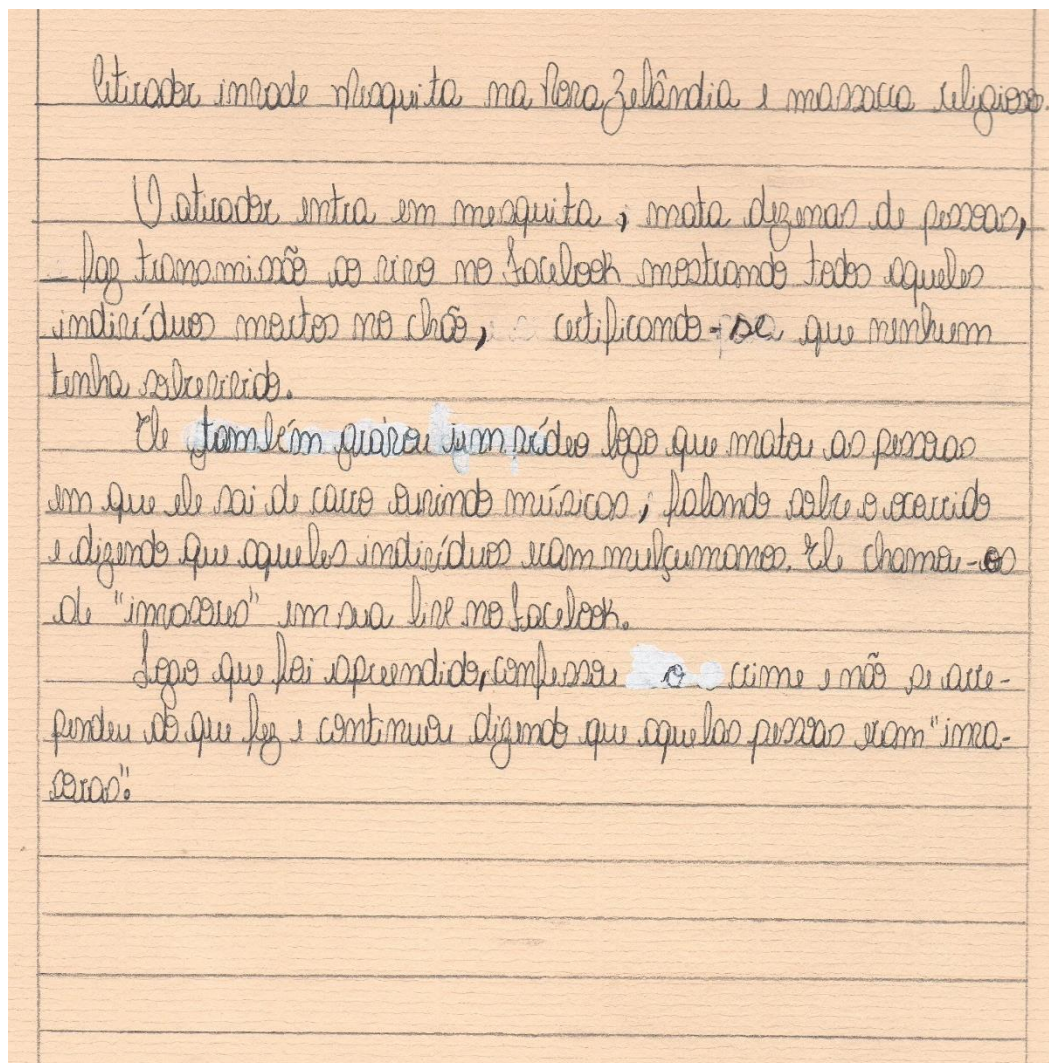 Atirador invade Mesquita na Nova Zelândia e massacra religioso.
O atirador entra em mesquita, mata dezenas de pessoas,
faz transmissão ao vivo no Facebook mostrando todos aqueles
indivíduos mortos no chão, certificando-se que nenhum
tenha sobrevivido.
Ele também gravou um vídeo logo que matou as pessoas
em que ele sai de carro ouvindo músicas, falando sobre o ocorrido
e dizendo que aqueles indivíduos eram mulçumanos. Ele chamou-os
de "invasores" em sua live no Facebook.
Logo que foi apreendido, confessou o crime e não se arre-
pendeu do que fez e continuou dizendo que aquelas pessoas eram "inva-
soras".